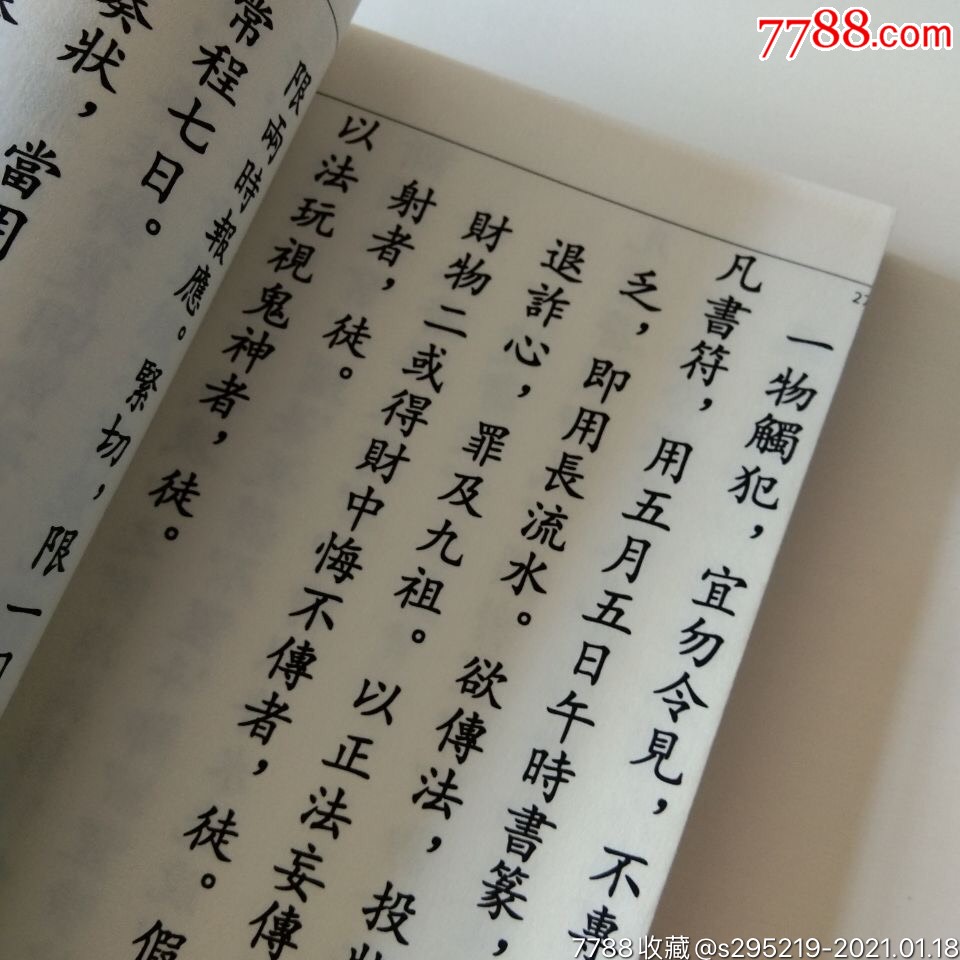 7788.com
27
一物觸犯，宜勿令見，不專
凡書符，用五月五日午時書篆，
乏，即用長流水。欲傳法，投
退詐心，罪及九祖。以正法妄傳
財物二或得財中悔不傳者，徒。假
射者，徒。
以法玩視鬼神者，徒。
限兩時報應。緊切，限一
常程七日。
奏狀，當用
7788收藏@s295219-2021.01.18